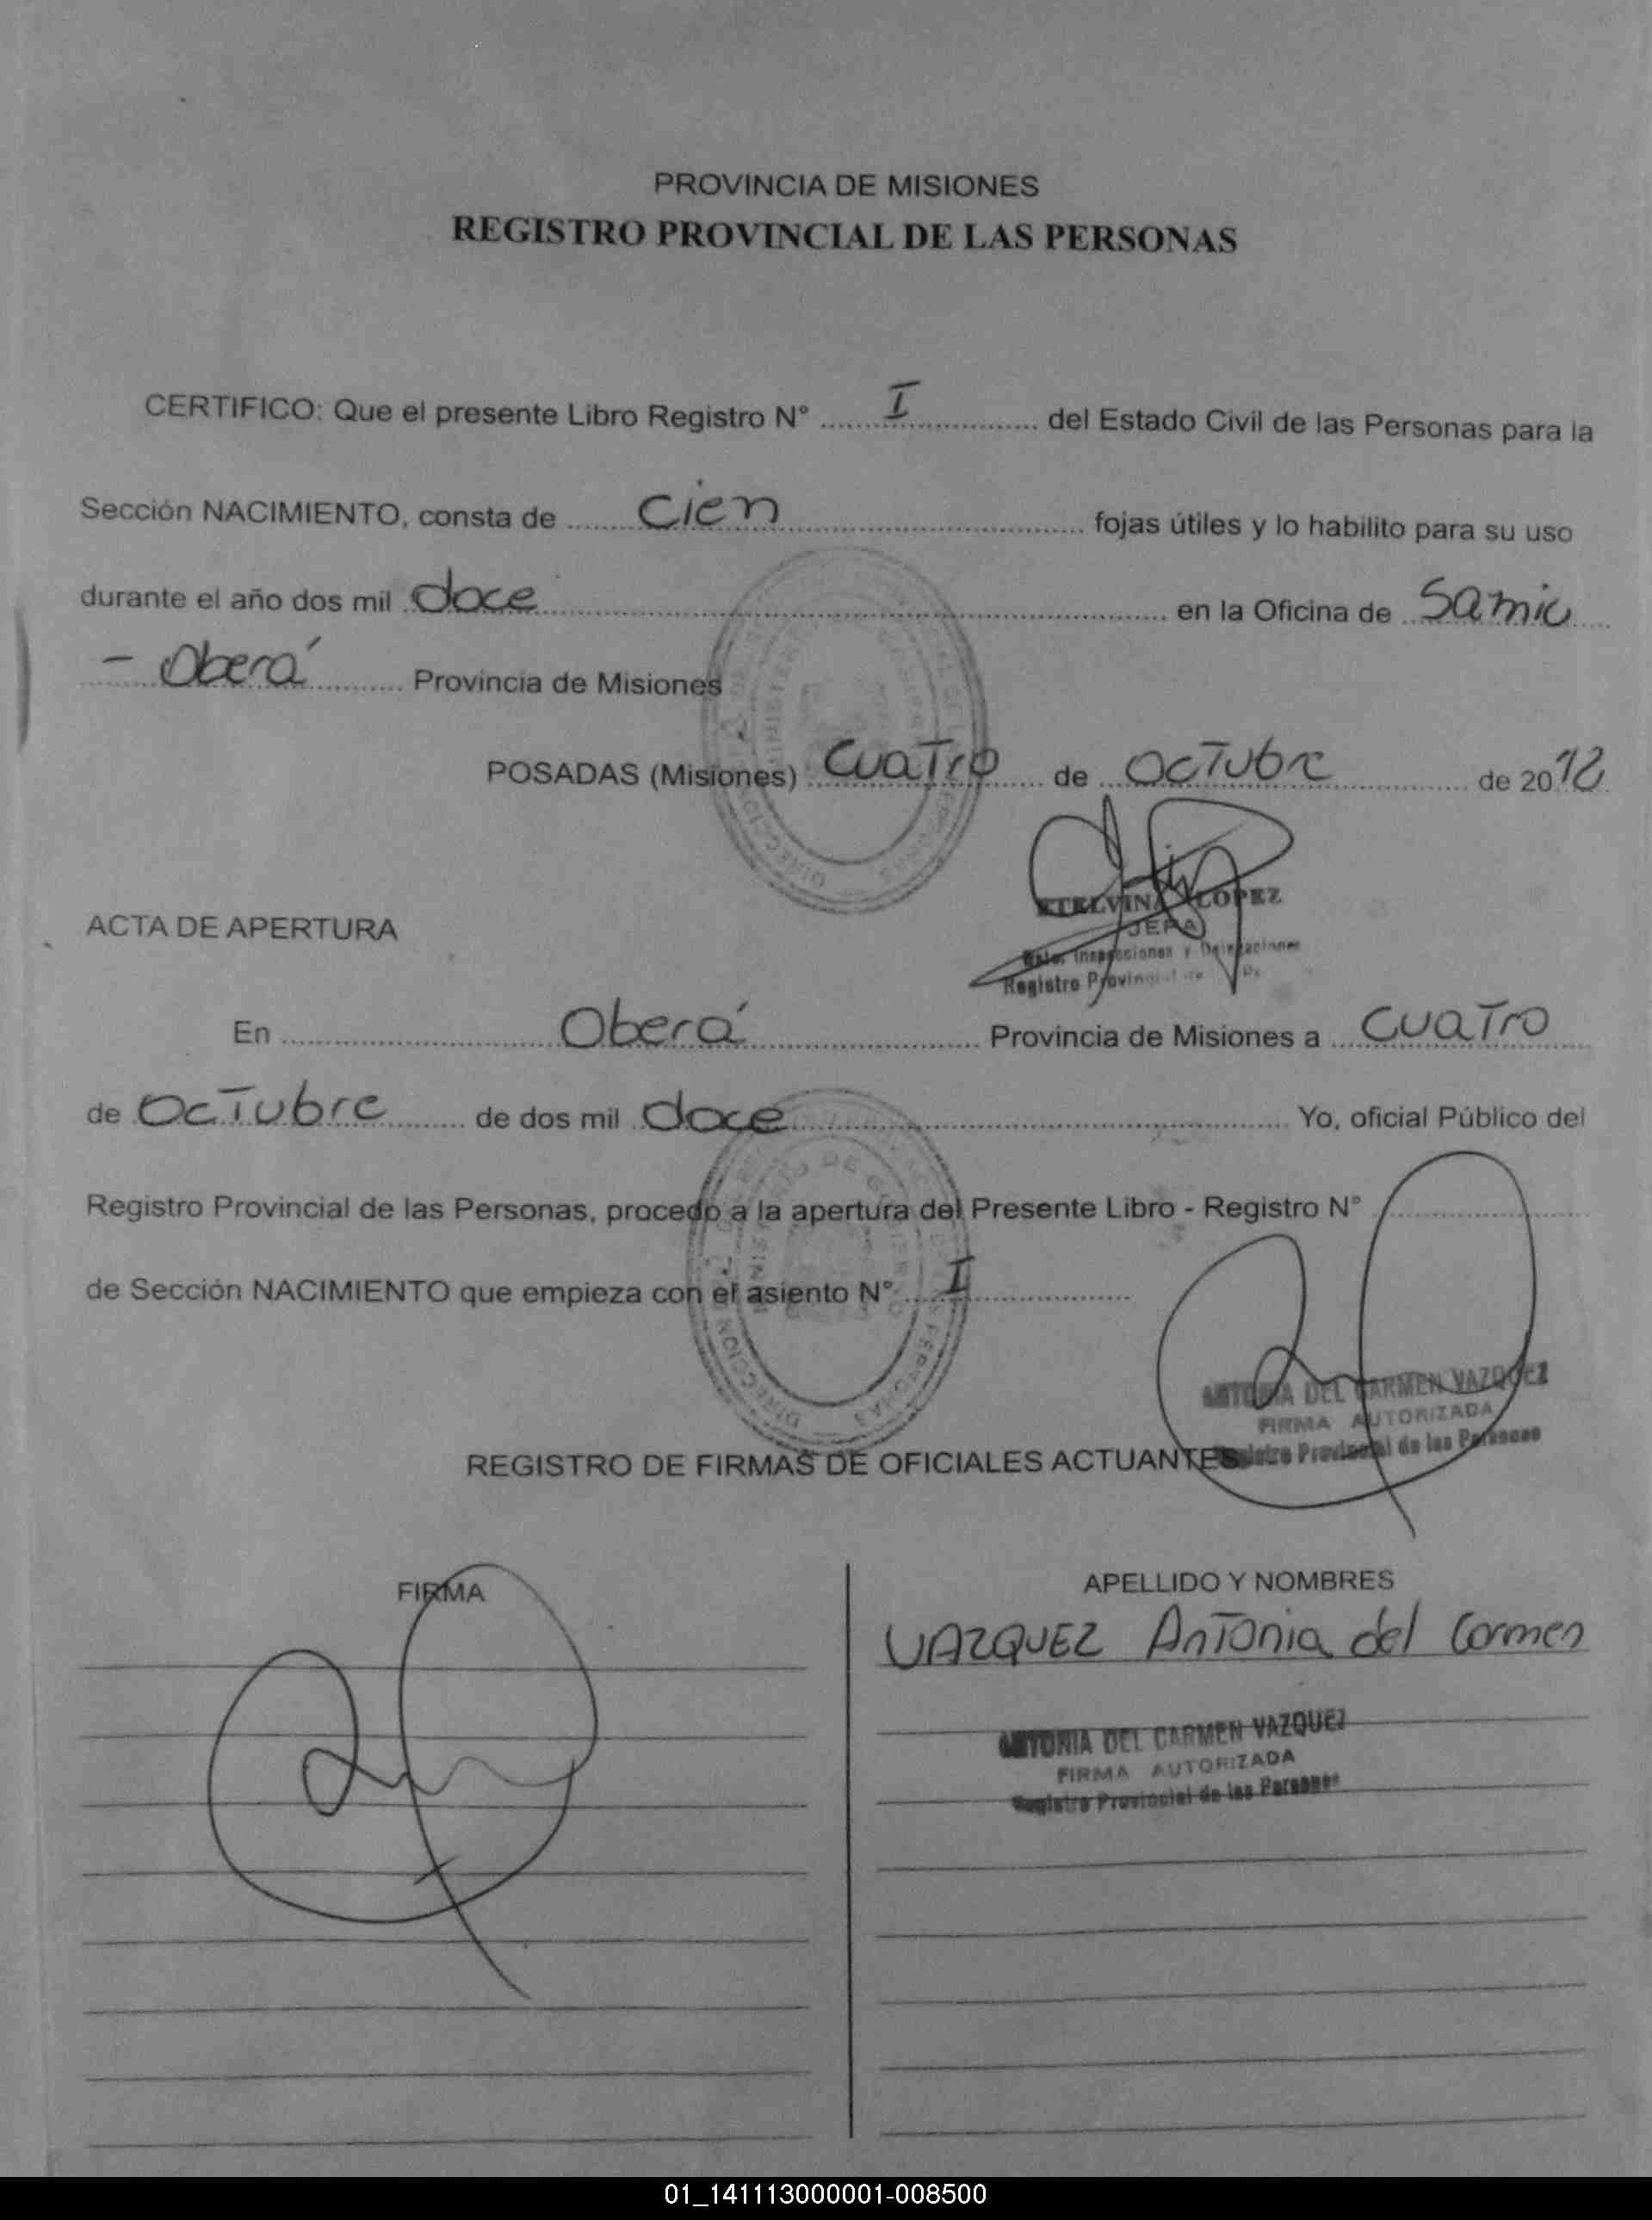 PROVINCIA DE MISIONES
REGISTRO PROVINCIAL DE LAS PERSONAS
CERTIFICO: Que el presente Libro Registro N° I del Estado Civil de las Personas para la
Sección NACIMIENTO, consta de cien fojas útiles y lo habilito para su uso
durante el año dos mil doce en la Oficina de Samic
- Oberá Provincia de Misiones
POSADAS (Misiones) cuatro de octubre de 2012
ETELVINA LOPEZ
JEFA
Inspecciones y Delegaciones
Registro
ACTA DE APERTURA
En Oberá Provincia de Misiones a cuatro
de octubre de dos mil doce Yo, oficial Público del
Registro Provincial de las Personas, procedo a la apertura del Presente Libro - Registro N°
de Sección NACIMIENTO que empieza con el asiento N° I
ANTONIA DEL CARMEN VAZQUEZ
FIRMA AUTORIZADA
Registro Provincial de las Personas
REGISTRO DE FIRMAS DE OFICIALES ACTUANTES
FIRMA
APELLIDO Y NOMBRES
VAZQUEZ Antonia del Carmen
ANTONIA DEL CARMEN VAZQUEZ
FIRMA AUTORIZADA
Registro Provincial de las Personas
01_141113000001-008500